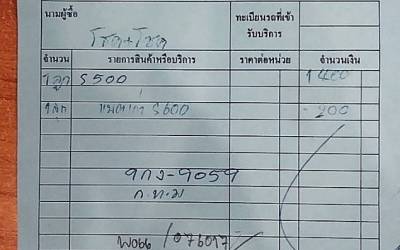 นามผู้ซื้อ
ทะเบียนรถที่เข้า
รับบริการ
โชค+โชค
จำนวน รายการสินค้าหรือบริการ ราคาต่อหน่วย จำนวนเงิน
1 ลูก S500 1400
S600 - 200
9กง-9059
ก.ท.ม
/076097/